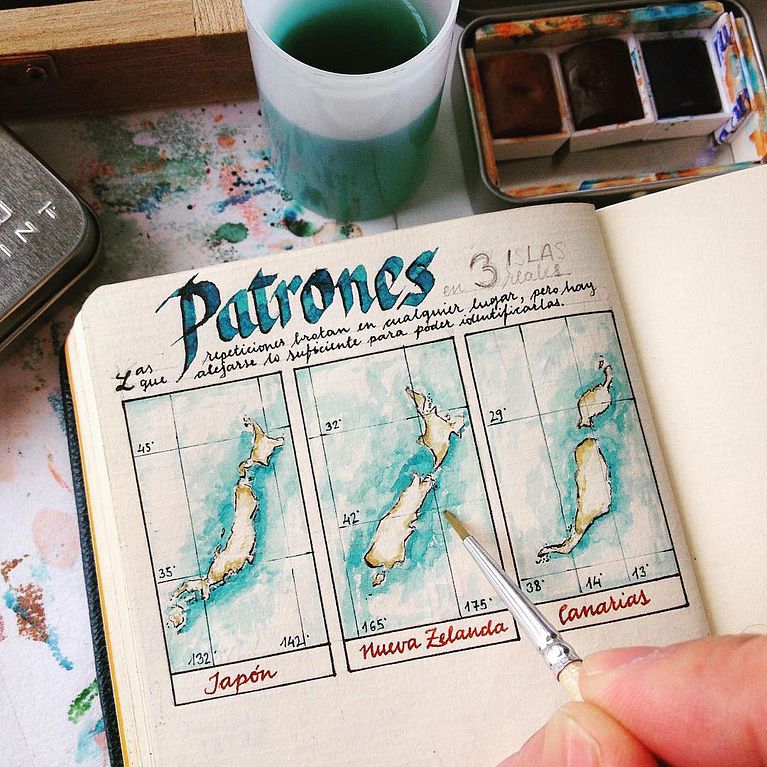 Patrones en 3 ISLAS reales
Las repeticiones brotan en cualquier lugar, pero hay
que alejarse lo suficiente para poder identificarlas.
45°
35°
132°
142°
Japón
32°
42°
165°
175°
Nueva Zelanda
29°
38°
14°
13°
Canarias
INT